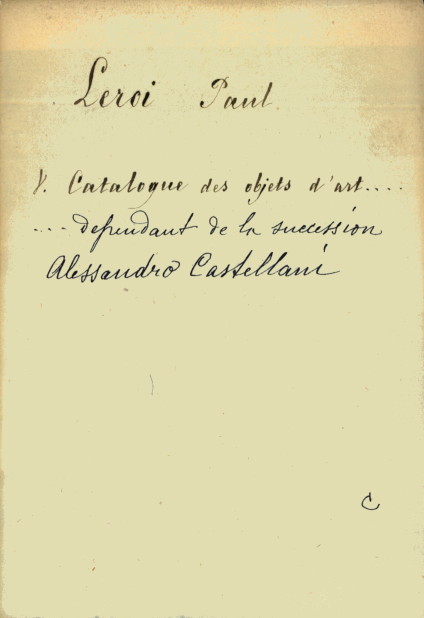 Leroi Paul.
V. Catalogue des objets d'art....
... dependant de la succession
Alessandro Castellani
C